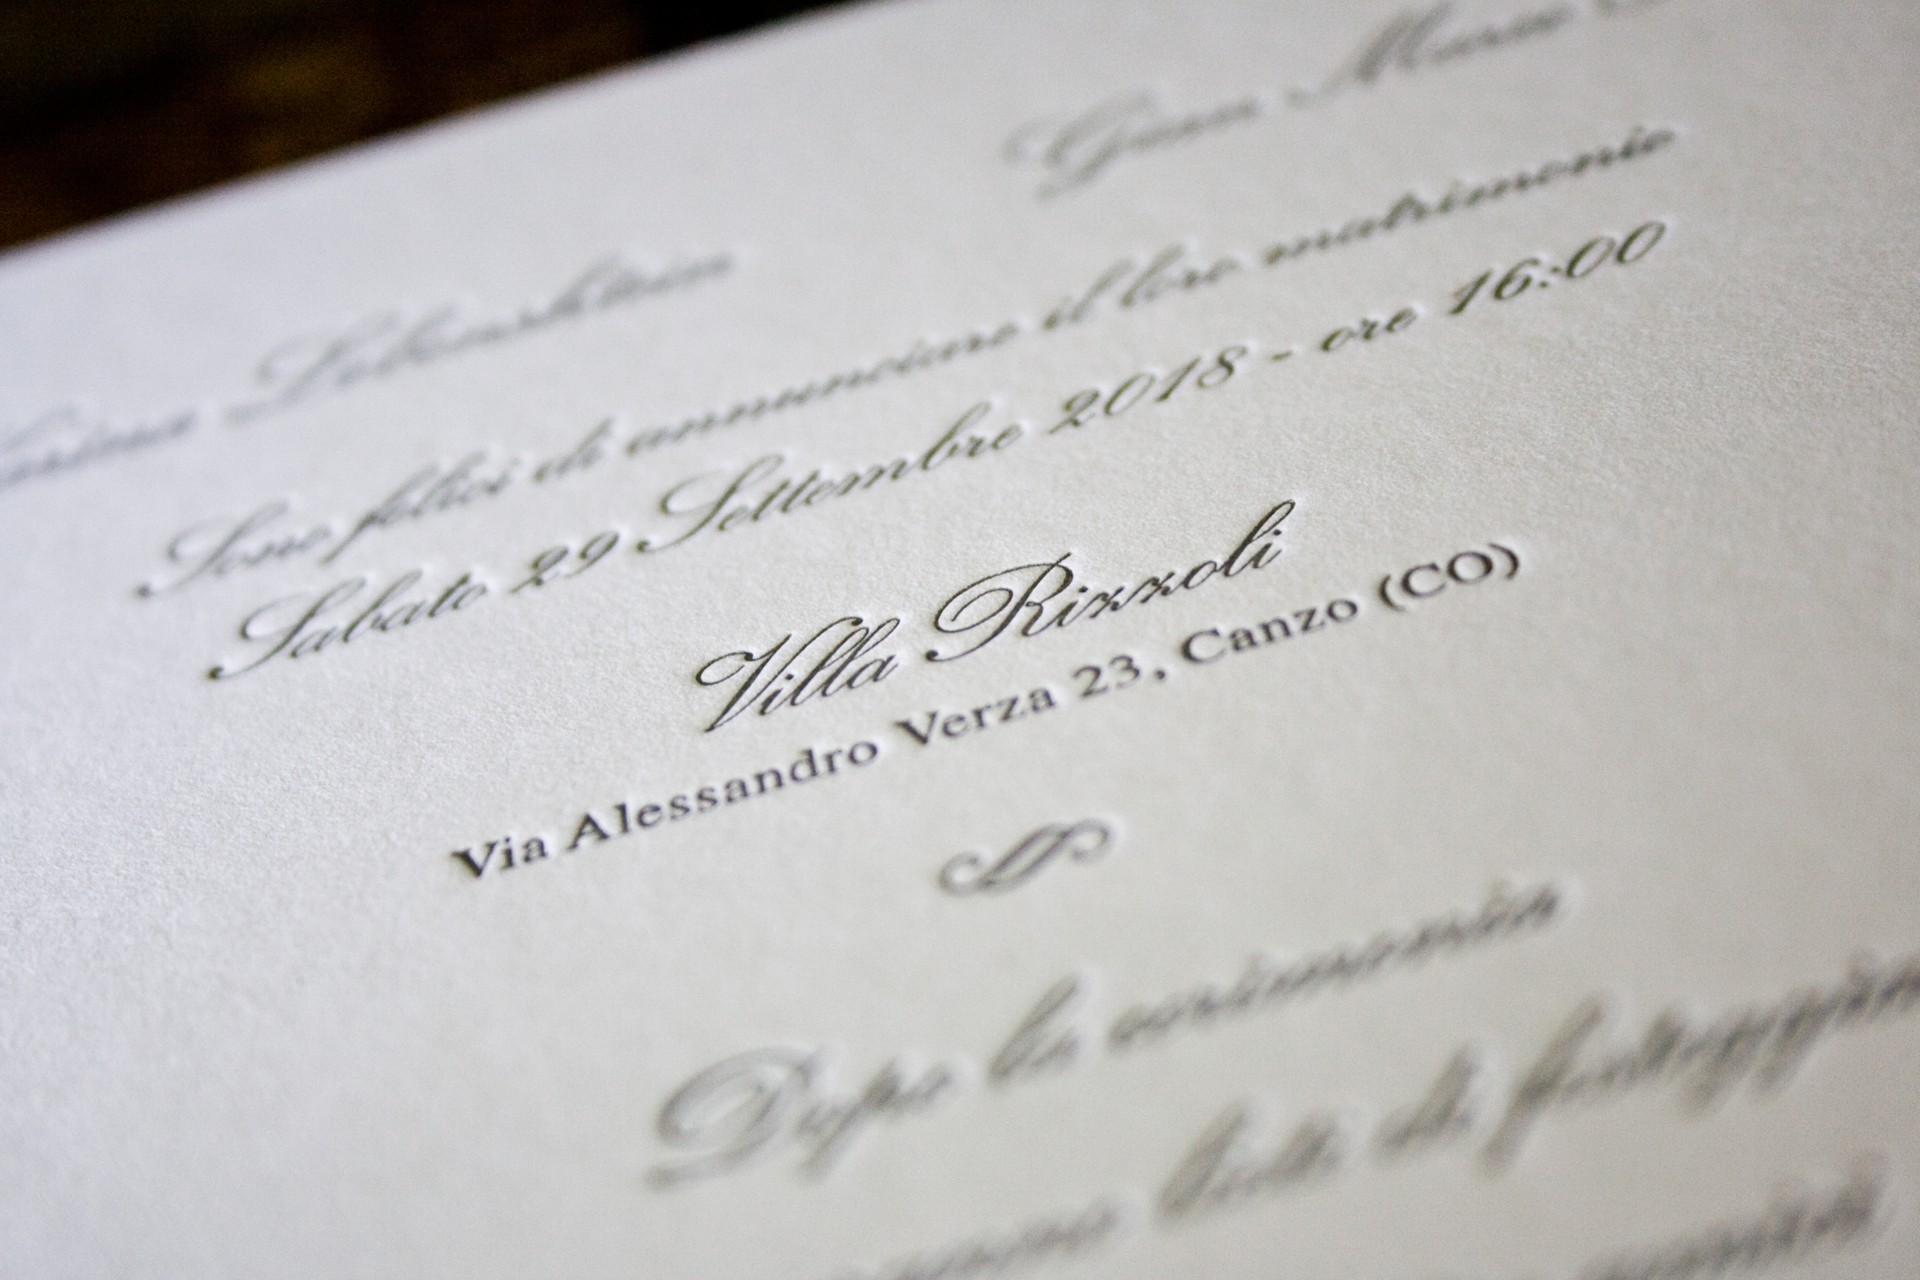 Gian Marco
Sono felici di annunciare il loro matrimonio
Sabato 29 Settembre 2018 - ore 16:00
Villa Rizzoli
Via Alessandro Verza 23, Canzo (CO)
Dopo la cerimonia
di festeggiare